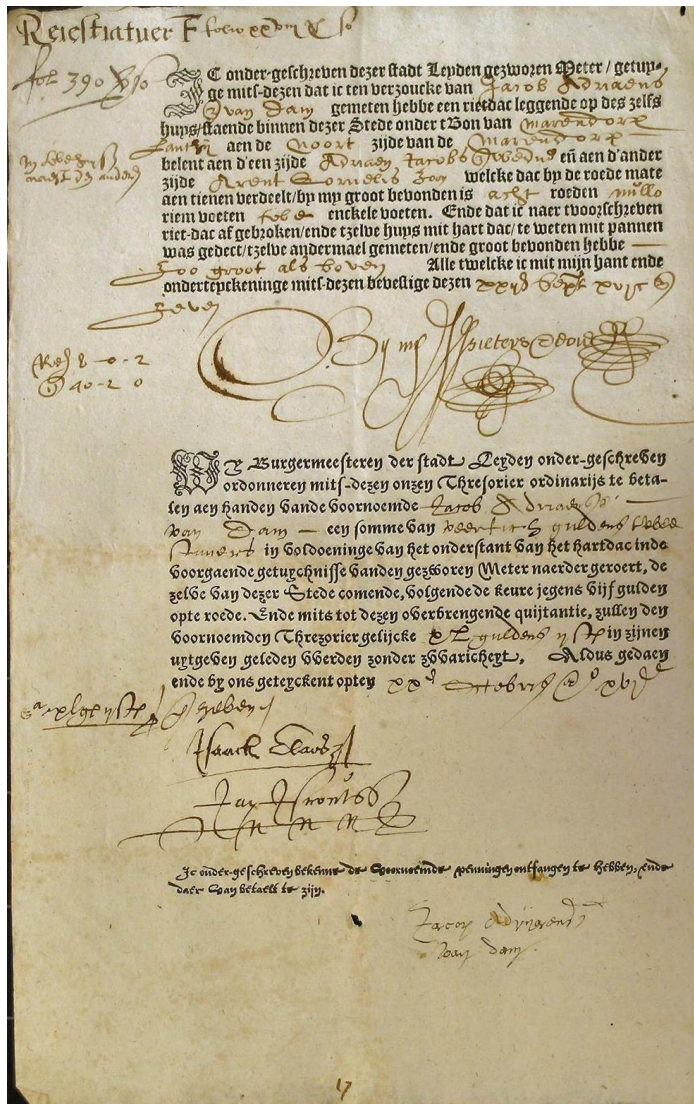 Reiestratuer F folio xxviii
fol 390
IC onder-geschreven dezer stadt Leyden gezworen Meter / getuy-
ge mits-dezen dat ic ten verzoucke van Jacob Adriaens
van Dam gemeten hebbe een rietdac leggende op des zelfs
huys/staende binnen dezer Stede onder tBon van Marendorp
Lant aen de Noort zijde van de Marendorp
belent aen d'een zijde Adriaen Jacobs eñ aen d'ander
zijde Arent Cornelis Zoon welcke dat by de roede mate
aen tienen verdeelt/by my groot bevonden is acht roeden nullo
riem voeten enckele voeten. Ende dat ic naer tvoorschreven
riet-dac af gebroken/ende tzelve huys mit hart dac/te weten mit pannen
was gedect/tzelve andermael gemeten/ende groot bevonden hebbe
Zoo groot als boven Alle twelcke ic mit mijn hant ende
onderteyckeninge mits-dezen bevestige dezen xxii Sept xvic
zeven
By my Pieters
8-0-2
40-2 0
WY Burgermeesteren der stadt Leyden onder-geschreven
ordonneren mits-dezen onzen Thresorier ordinarijs te beta-
len aen handen vande voornoemde Jacob Adriaensz
van Dam een somme van veertich guldens twee
stuvers in voldoeninge van het onderstant van het hartdac inde
voorgaende getuychnisse vanden gezworen Meter naerder geroert, de
zelve van dezer Stede comende, volgende de keure jegens vijf gulden
opte roede. Ende mits tot dezen overbrengende quijtantie, zullen den
voornoemden Threzorier gelijcke xl guldens ij st in zijnen
uytgeven geleden vverden zonder zvvaricheyt. Aldus gedaen
ende by ons geteyckent opten xxe Octobris xvic
zeven
Isaack Claesz
Jan
Ic onder-geschreven bekenne de voornoemde penningen ontfangen te hebben, ende
daer van betaelt te zijn.
Jacop Adryaensz
van dam
17